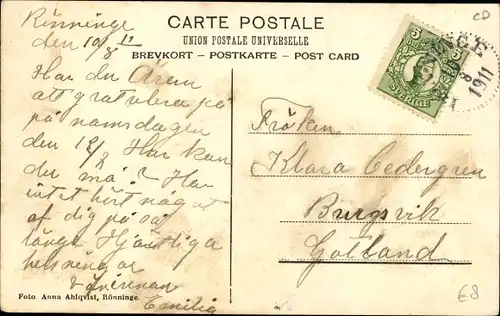 CARTE POSTALE
UNION POSTALE UNIVERSELLE
BREVKORT - POSTKARTE - POST CARD
Rönninge
den 10/8 11
Har du Ären
att gratulera på
på namsdagen
den 12/8 Har kan
du må? Har
intet hört något
af dig på så
länge Hjärtliga
helsningar
Emilia
5 5
SVERIGE
1911
CD
Fröken
Klara Cedergren
Burgsvik
Gotland
Foto Anna Ahlqvist, Rönninge.
€8